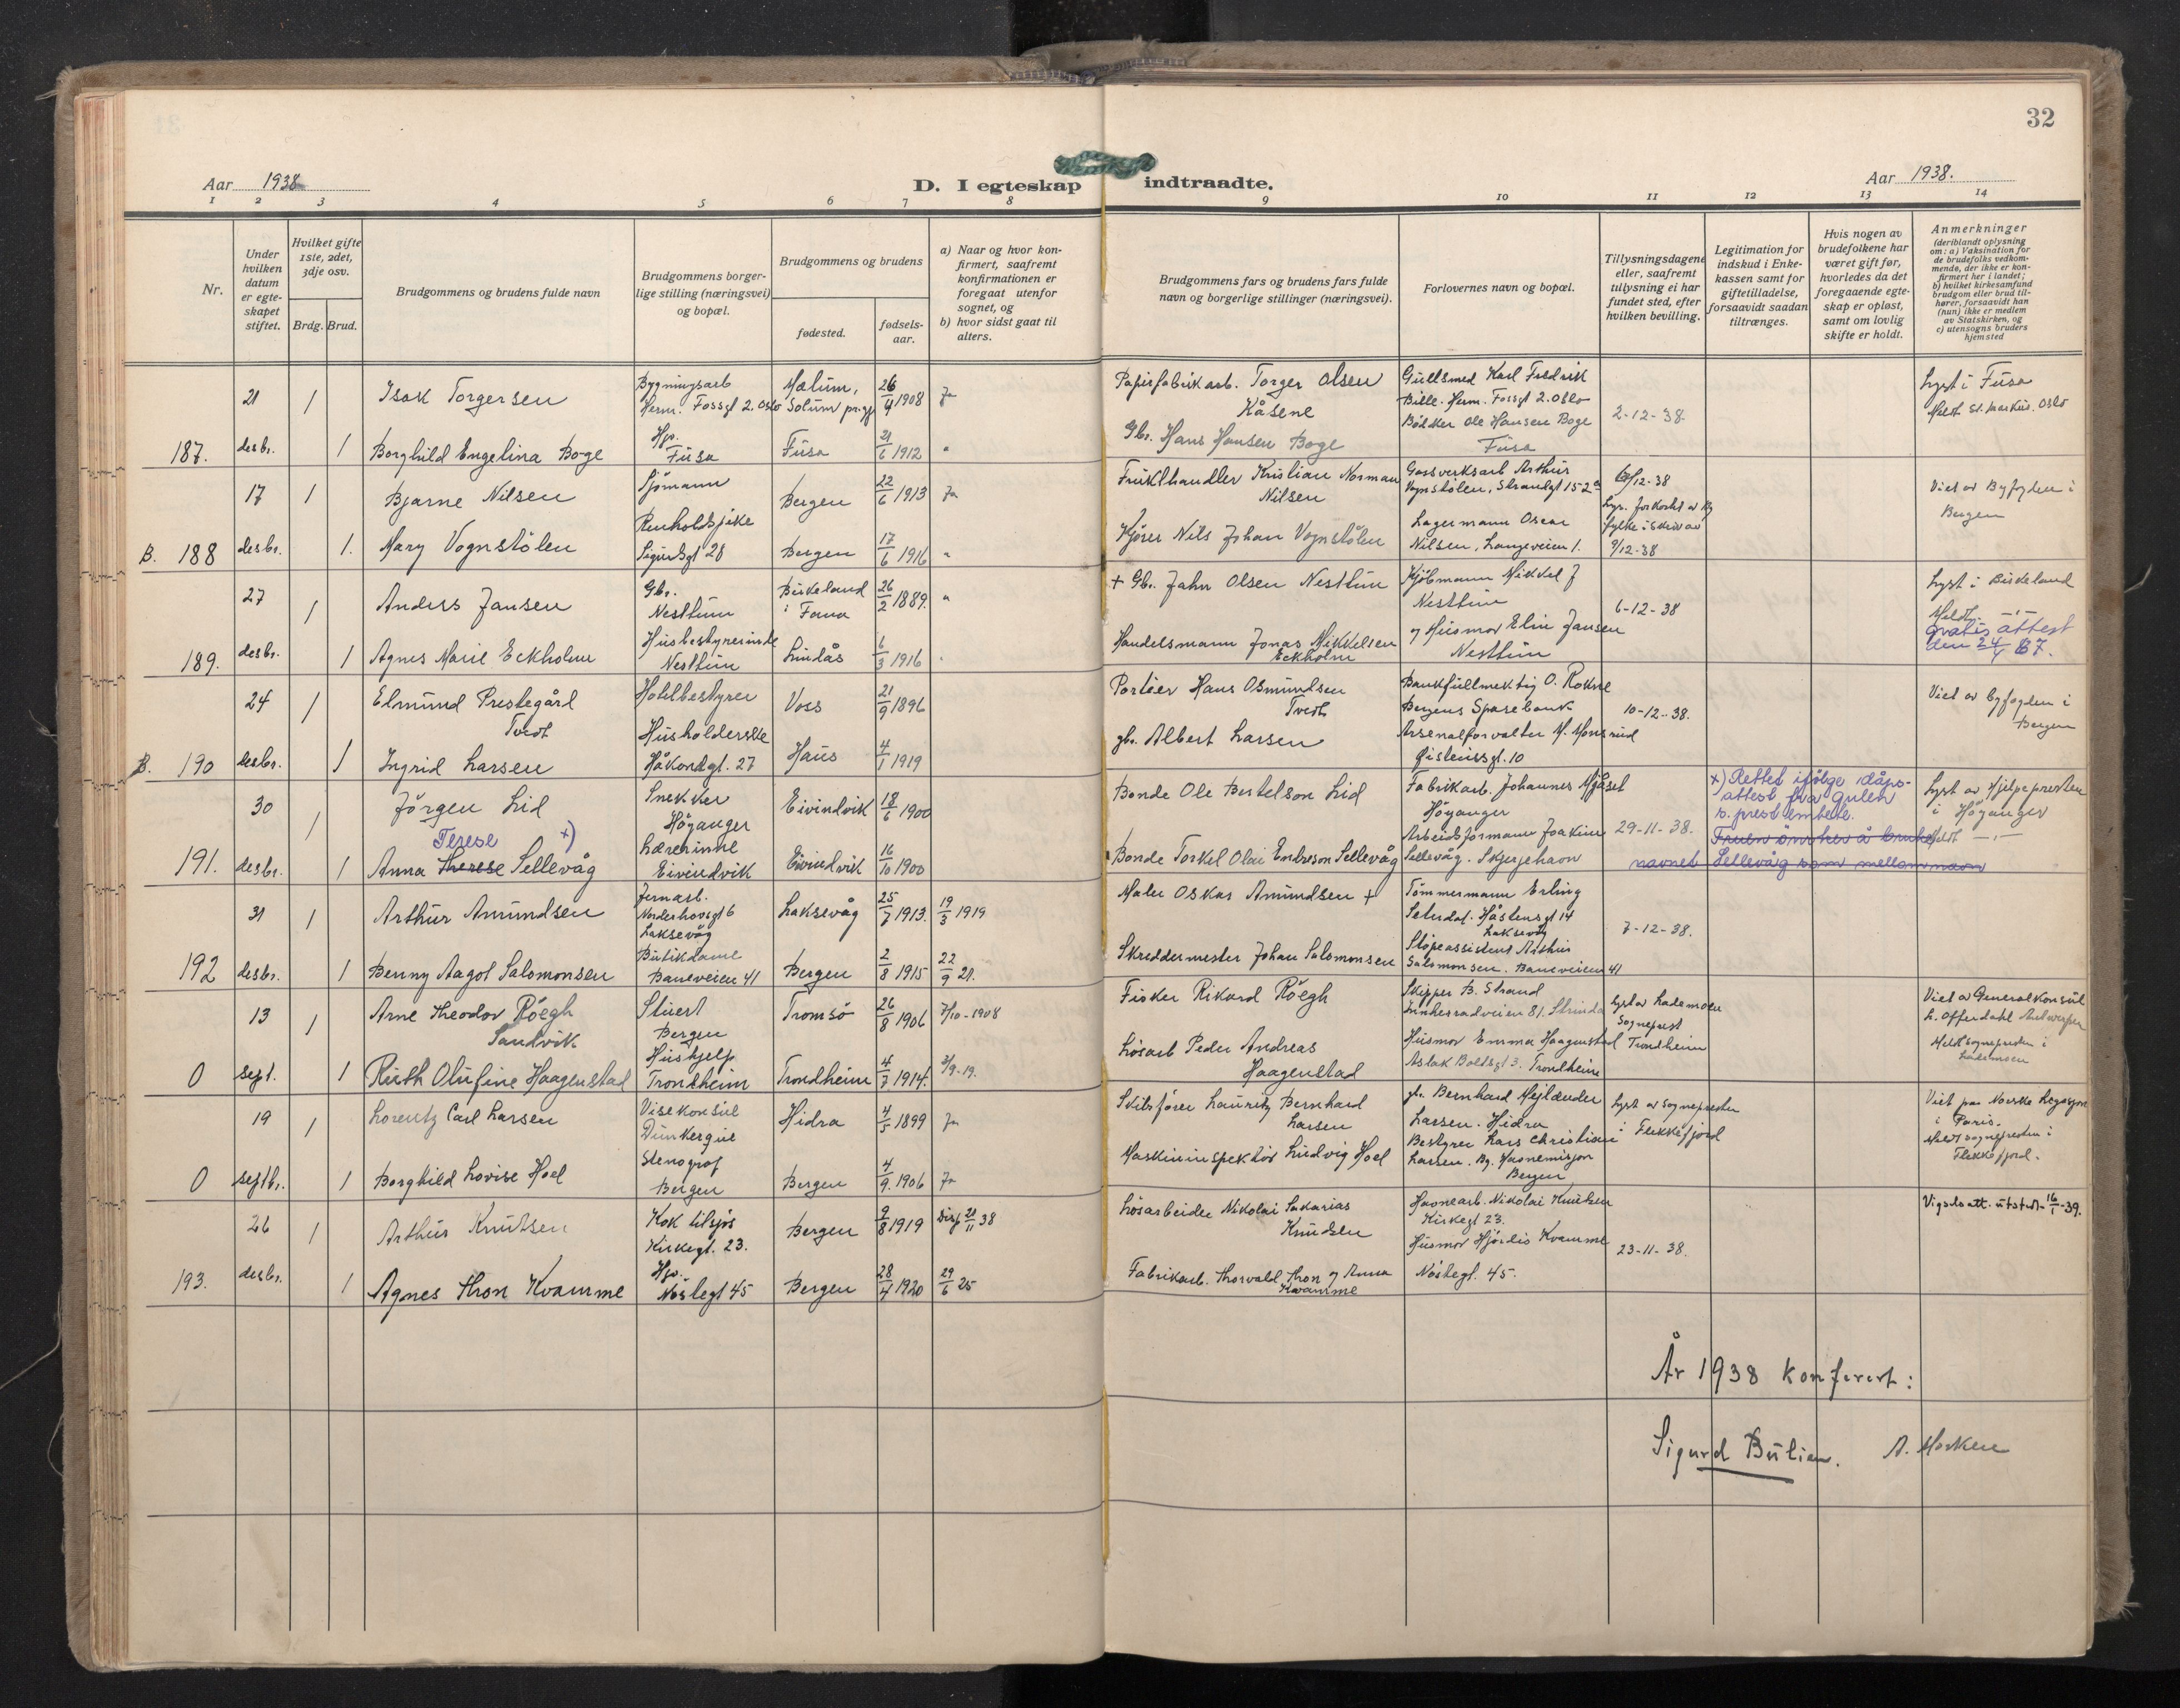 32
Aar 1938
D. I egteskap indtraadte.
Aar 1938.
1 2 3 4 5 6 7 8 9 10 11 12 13 14
Nr.
Under hvilken datum er egteskapet stiftet.
Hvilket gifte 1ste, 2det, 3dje osv.
Brdg. Brud.
Brudgommens og brudens fulde navn
Brudgommens borgerlige stilling (næringsvei) og bopæl.
Brudgommens og brudens
fødested.
fødselsaar.
a) Naar og hvor konfirmert, saafremt konfirmationen er foregaat utenfor sognet, og
b) hvor sidst gaat til alters.
Brudgommens fars og brudens fars fulde navn og borgerlige stillinger (næringsvei).
Forlovernes navn og bopæl.
Tillysningsdagene eller, saafremt tillysning ei har fundet sted, efter hvilken bevilling.
Legitimation for indskud i Enkekassen samt for giftetilladelse, forsaavidt saadan tiltrænges.
Hvis nogen av brudefolkene har været gift før, hvorledes da det foregaaende egteskap er opløst, samt om lovlig skifte er holdt.
Anmerkninger
(deriblandt oplysning om: a) Vaksination for de brudefolks vedkommende, der ikke er konfirmert her i landet; b) hvilket kirkesamfund brudgom eller brud tilhører, forsaavidt han (hun) ikke er medlem av Statskirken, og c) utensogns bruders hjemsted
21 1 Isak Torgersen Bygningsarb Herm. Fossgt 2. Oslo Mælum, Solum pr.gj 26/4 1908 Ja Papirfabrikarb. Torger Olsen Kåsene Gullsmed Karl Fredrik Bille. Herm. Fossgt 2. Oslo 2-12-38 Lyst i Fusa Meldt St. Markus. Oslo
187. desbr. 1 Borghild Engelina Boge Hp. Fusa Fusa 21/6 1912 " Gbr. Hans Hansen Boge Bødker Ole Hansen Boge Fusa
17 1 Bjarne Nilsen Sjømann Bergen 22/6 1913 Ja Frukthandler Kristian Norman Nilsen Gassverksarb Arthur Vognstølen, Strandgt 152 a /12-38 Viet av Byfogden i Bergen
B. 188 desbr. 1. Mary Vognstölen Renholdspike Sigurdsgt 28 Bergen 17/6 1916 " Kjører Nils Johan Vognstølen Lagermann Oscar Nilsen, Langeveien 1. 9/12-38
27 1 Anders Jansen Gbr. Nesttun Birkeland i Fana 26/2 1889. " + Gbr. Jahn Olsen Nesttun Kjöbmann Mikkel J Nesttun 6-12-38 Lyst i Birkeland Meldt -"-
189. desbr. 1 Agnes Marie Eckholm Husbestyrerinde Nesttun Lindås 6/3 1916 " Handelsmann Jonas Mikkelsen Eckholm og Husmor Elin Jansen Nesttun Gratis attest den 24/4 67.
24 1 Elmund Prestegård Tvedt Hotelbestyrer Voss 21/9 1896 Portier Hans Osmundsen Tvedt Bankfullmektig O. Rokne Bergens Sparebank 10-12-38. Viet av byfogden i Bergen
B. 190 desbr. 1 Ingrid Larsen Husholderske Håkonsgt. 27 Haus 4/1 1919 gbr. Albert Larsen Arsenalforvalter M. Monsrud Øisteinsgt. 10
30 1 Jörgen Lid Snekker Höyanger Eivindvik 18/6 1900 Bonde Ole Bertelson Lid Fabrikarb. Johannes Höyanger 29-11-38. x) Rettet ifölge dåpsattest fra Gulen s. prestembete. Lyst av Hjelpepresten i Höyanger Meldt -"-
191. desbr. 1 Anna Therese Terese x) Sellevåg Lærerinne Eivindvik Eivindvik 16/10 1900 Bonde Torkel Olai Endreson Sellevåg Arbeidsformann Joakim Sellevåg. Skjerjehavn Fruen önsker å bruke navnet Sellevåg som mellomnavn
31 1 Arthur Amundsen Jernarb. Nordrehovsgt 6 Laksevåg Laksevåg 25/7 1913. 19/3 1919 Maler Oskar Amundsen + Tömmermann Erling Seterdal. Håstensgt 14 Laksevåg 7-12-38.
192 desbr. 1 Benny Aagot Salomonsen Butikdame Baneveien 41 Bergen 2/8 1915 22/9 21. Skreddermester Johan Salomonsen Støpeassistent Arthur Salomonsen. Baneveien 41
13 1 Arne Theodor Röegh Sandvik Stuert Bergen Tromsö 26/8 1906 7/10-1908 Fisker Rikard Röegh Skipper B. Strand Innherradveien 81. Strinda Lyst av Lademoen Sogneprest Trondheim Viet av Generalkonsul L. Offerdahl Antwerpen Meldt sognepresten i Lademoen
0 sept. 1 Ruth Olufine Haagenstad Hushjelp Trondheim Trondheim 4/7 1914. 3/9-19. Løsarb Peder Andreas Haagenstad Husmor Emma Haagenstad Aslak Boltsgt 3. Trondheim
19 1 Lorentz Carl Larsen Visekonsul Dunkerque Hidra 4/5 1899 Ja Skibsfører Lauritz Bernhard Larsen gb. Bernhard Mejlænder Larsen. Hidra Lyst av Sognepresten i Flekkefjord Viet paa Norske Legasjon i Paris. Meldt sognepresten i Flekkefjord.
0 septbr. 1 Borghild Lovise Hoel Stenograf Bergen Bergen 4/9. 1906 Ja Maskininspektör Ludvig Hoel Bestyrer Lars Christian Larsen. Bg. Havnemisjon Bergen
26 1 Arthur Knutsen Kok tilsjøs Kirkegt. 23. Bergen 9/8 1919 Disp 21/11 38 Løsarbeider Nikolai Sakarias Knudsen Havnearb. Nikolai Knutsen Kirkegt 23. 23-11-38. Vigselsatt. utstedt 16/1-39.
193. desbr. 1 Agnes Thon Kvamme Hp. Nöstegt 45 Bergen 28/4 1920 29/6 25 Fabrikarb. Thorvald Thon og Anna Kvamme Husmor Hjördis Kvamme Nöstegt. 45.
År 1938 konferert:
Sigurd Bulien. A. Morken